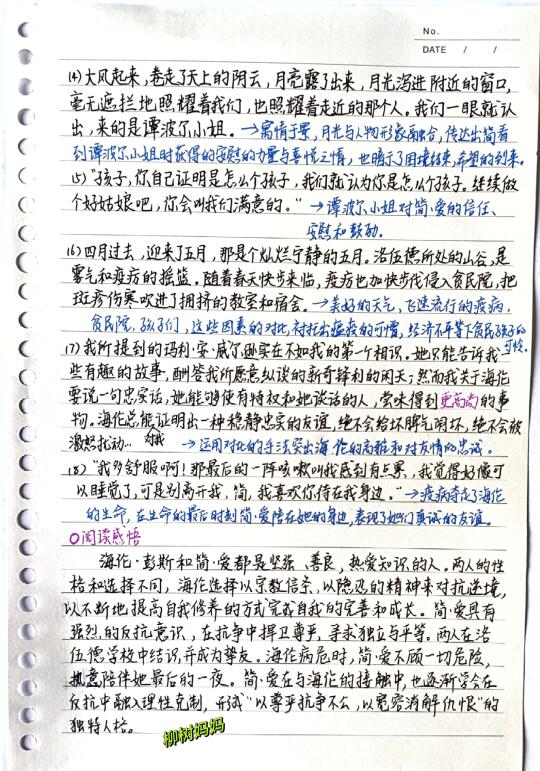 No.
DATE / /
(4)大风起来,卷走了天上的阴云,月亮露了出来,月光泻进附近的窗口,
毫无遮拦地照耀着我们,也照耀着走近的那个人。我们一眼就认
出,来的是谭波尔小姐。→寓情于景,月光与人物形象融合,传达出简看
到谭波尔小姐时获得的安慰的力量与喜悦之情,也暗示了困境结束,希望的到来。
15)"孩子,你自己证明是怎么个孩子,我们就认为你是怎么个孩子。继续做
个好姑娘吧,你会叫我们满意的。"→谭波尔小姐对简·爱的信任、
安慰和鼓励。
16)四月过去,迎来了五月,那是个灿烂宁静的五月。洛伍德所处的山谷,是
雾气和疫疠的摇篮。随着春天快步来临,疫疠也加快步伐侵入贫民院,把
斑疹伤寒吹进了拥挤的教室和宿舍。→美好的天气,飞速流行的疫病,
贫民院,孩子们,这些因素的对比,衬托出瘟疫的可惧,经济不平等下贫民孩子的
可怜。
17)我所提到的玛利·安·威尔逊实在不如我的第一个相识。她只能告诉我一
些有趣的故事,酬答我所愿意纵谈的新奇锋利的闲天;然而我关于海伦
要说一句忠实话,她能够使有特权和她谈话的人,尝味得到更高尚的事
物。海伦总能证明出一种稳静忠实的友谊,绝不会给坏脾气闹坏,绝不会被
激怒扰动… 对我 →运用对比的手法突出海伦的高雅和对友情的忠诚。
18)"我多舒服啊!那最后的一阵咳嗽叫我感到有点累,我觉得好像可
以睡觉了,可是别离开我,简,我喜欢你待在我身边。"→疫病夺走了海伦
的生命,在生命的最后时刻简·爱陪在她的身边,表现了她们真诚的友谊。
○阅读感悟
海伦·彭斯和简·爱都是坚强、善良,热爱知识的人。两人的性
格和选择不同,海伦选择以宗教信条,以隐忍的精神来对抗逆境,
以不断地提高自我修养的方式完成自我的完善和成长。简·爱具有
强烈的反抗意识,在抗争中捍卫尊严,寻求独立与平等。两人在洛
伍德学校中结识并成为挚友。海伦病危时,简·爱不顾一切危险,
执意陪伴她最后的一夜。简·爱在与海伦的接触中,也逐渐学会在
反抗中融入理性克制,形成"以尊严抗争不公,以宽容消解仇恨"的
独特人格。
柳树妈妈